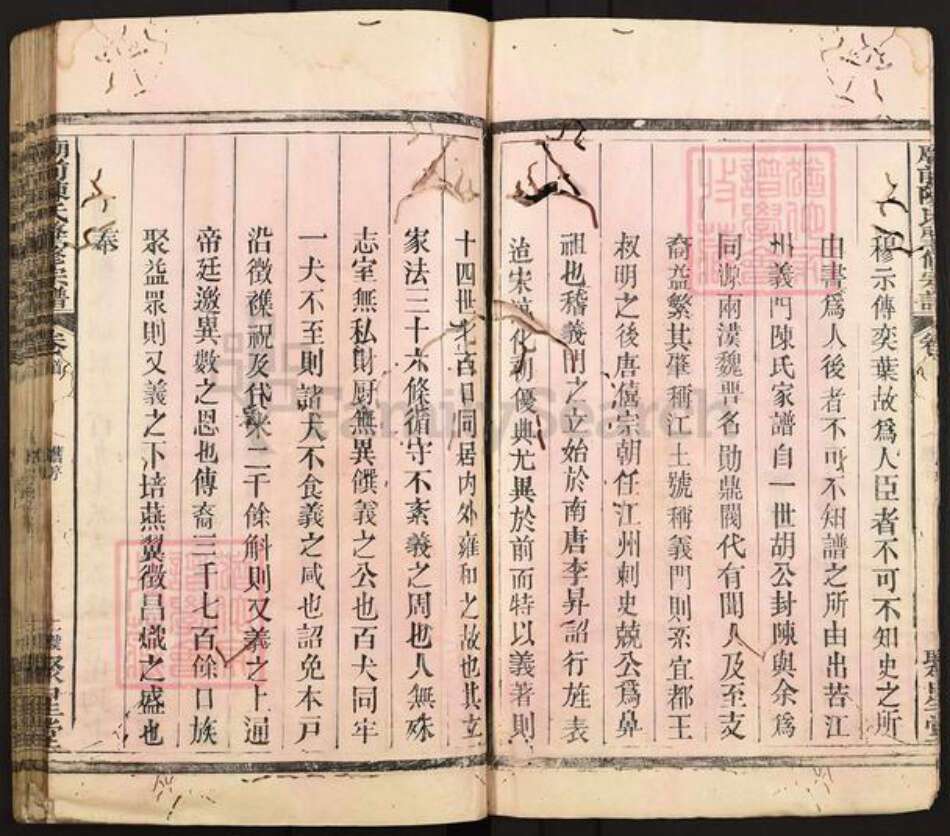 穆示傳奕葉故爲人臣者不可不知史之所
由書爲人後者不可不知譜之所由出苦江
州義門陳氏家譜自一世胡公封陳與余爲
同源兩漢魏晋名勛鼎閥代有聞人及至支
裔益繁其肇稱江土號稱義門則系宜都王
叔明之後唐僖宗朝任江州刺史兢公爲鼻
祖也稽義門之立始於南唐李昇詔行旌表
迨宋淳化朝優典尤異於前而特以義著則
十四世七百口同居内外雍和之故也其立
家法三十六條循守不紊義之周也人無殊
志室無私財厨無異饌義之公也百犬同牢
一犬不至則諸犬不食義之咸也詔免本戸
沿徵襍祝及代米二千餘斛則又義之上通
帝廷邀異數之恩也傳裔三千七百餘口族
聚益眾則又義之下培燕翼徵昌熾之盛也
奉
聚星堂
FamilySearch